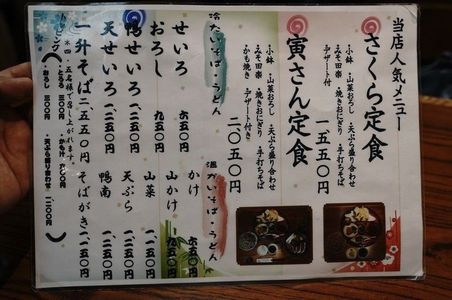 当店人気メニュー
さくら定食
小鉢・山菜おろし・天ぷら盛り合わせ
みそ田楽・焼きおにぎり・手打ちそば
デザート付
一五五〇円
寅さん定食
小鉢・山菜おろし・天ぷら盛り合わせ
みそ田楽・焼きおにぎり・手打ちそば
かも焼き デザート付き
二〇五〇円
冷たいそば・うどん
温かいそば・うどん
せいろ 六五〇円
かけ 六五〇円
おろし 九五〇円
山かけ 九五〇円
鴨せいろ 一二五〇円
山菜
天せいろ
天ぷら
鴨南
一升そば 二、五五〇円
そばがき 一一五〇円
木四、五名様で召し上がれます。
トッピング
とろろ 三〇〇円
おろし
かも汁
天ぷら盛り合わせ